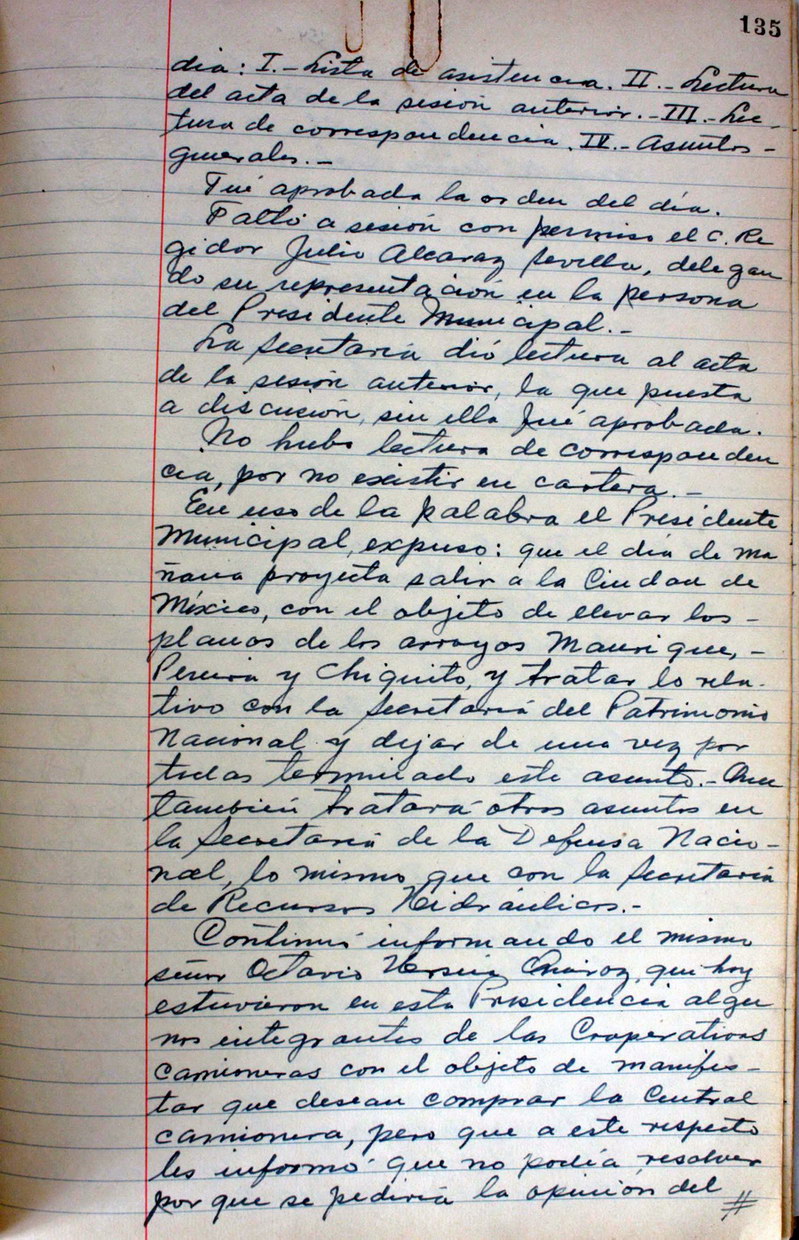 135
dia: I.- Lista de asistencia. II.- Lectura
del acta de la sesión anterior.- III.- Lec-
tura de correspondencia. IV.- Asuntos-
generales.-
Fué aprobada la orden del día.
Faltó a sesión con permiso el C. Re
gidor Julio Alcaraz Sevilla, delegan
do su representación en la persona
del Presidente Municipal.-
La Secretaría dió lectura al acta
de la sesión anterior, la que puesta
a discusión, sin ella fué aprobada.
No hubo lectura de corresponden
cia, por no existir en cartera.-
En uso de la palabra el Presidente
Municipal, expuso: que el día de ma
ñana proyecta salir a la Ciudad de
México, con el objeto de llevar los-
planos de los arroyos Manrique,-
Pereira y Chiquito, y tratar lo rela-
tivo con la Secretaría del Patrimonio
Nacional y dejar de una vez por
todas terminado este asunto.- Que
también tratará otros asuntos en
la Secretaría de la Defensa Nacio-
nal, lo mismo que con la Secretaría
de Recursos Hidráulicos.-
Continuó informando el mismo
señor Octavio que hoy
estuvieron en esta Presidencia algu
nos integrantes de las Cooperativas
camioneras con el objeto de manifes-
tar que desean comprar la Central
camionera, pero que a este respecto
les informó que no podía resolver
por que se pediría la opinión del #